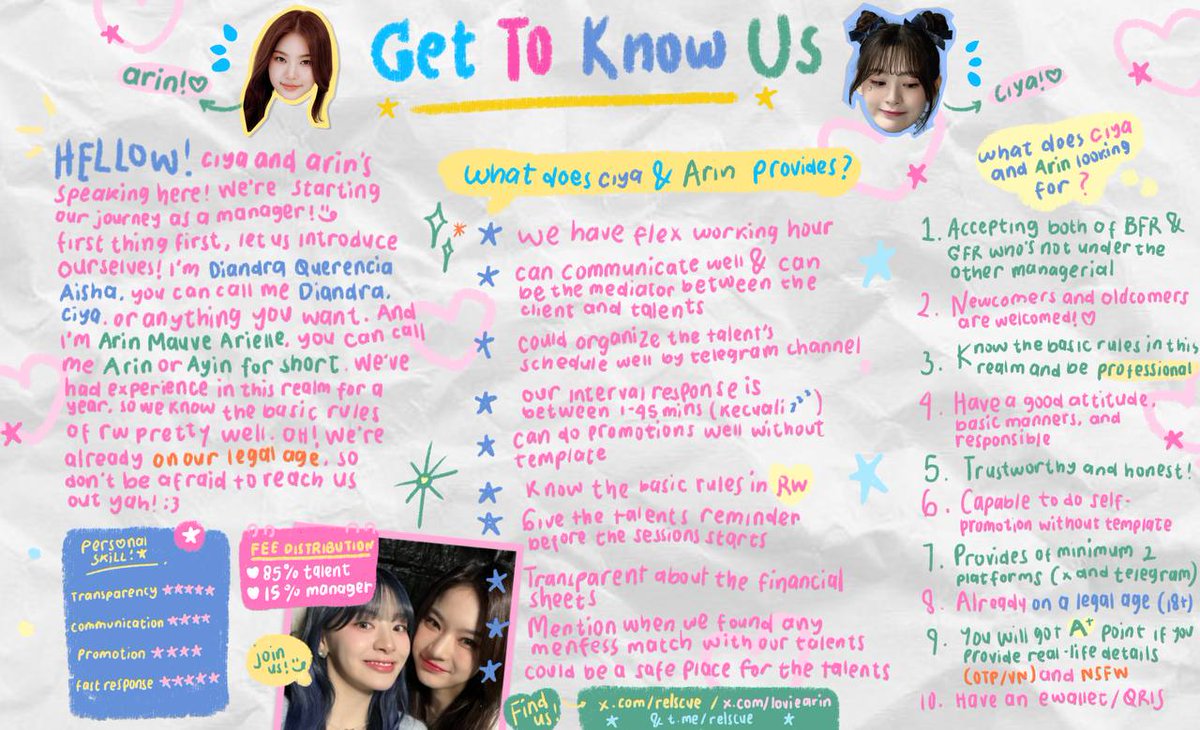 Get To Know Us
arin!♡
ciya!♡
HELLOW! ciya and arin's
speaking here! we're starting
our journey as a manager!
first thing first, let us introduce
ourselves! i'm Diandra Querencia
Aisha, you can call me Diandra,
Ciya, or anything you want. And
i'm Arin Mauve Arielle, you can call
me Arin or Ayin for short. we've
had experience in this realm for a
year, so we know the basic rules
of rw pretty well. OH! we're
already on our legal age, so
don't be afraid to reach us
out yah! :3
Personal
SKILL!*
Transparency ★★★★★
Communication ★★★★
Promotion ★★★★
fast response ★★★★★
FEE DISTRIBUTION
♥ 85% talent
♥ 15% manager
join
us!
what does ciya & Arin provides?
★ we have flex working hour
★ can communicate well & can
be the mediator between the
client and talents
★ could organize the talent's
schedule well by telegram channel
★ our interval response is
between 1-45 mins (kecuali zzz)
★ can do promotions well without
template
★ Know the basic rules in Rw
★ Give the talents reminder
before the sessions starts
★ Transparent about the financial
sheets
★ Mention when we found any
menfess match with our talents
★ could be a safe place for the talents
Find
us!
x.com/relscue / x.com/loviearin
& t.me/relscue
what does ciya
and Arin looking
for?
1. Accepting both of BFR &
GFR who's not under the
other managerial
2. Newcomers and oldcomers
are welcomed!♡
3. Know the basic rules in this
realm and be professional
4. Have a good attitude,
basic manners, and
responsible
5. Trustworthy and honest!
6. Capable to do self-
promotion without template
7. Provides of minimum 2
platforms (x and telegram)
8. Already on a legal age (18+)
9. You will got A+ point if you
provide real-life details
(OTP/VN) and NSFW
10. Have an ewallet/QRIS